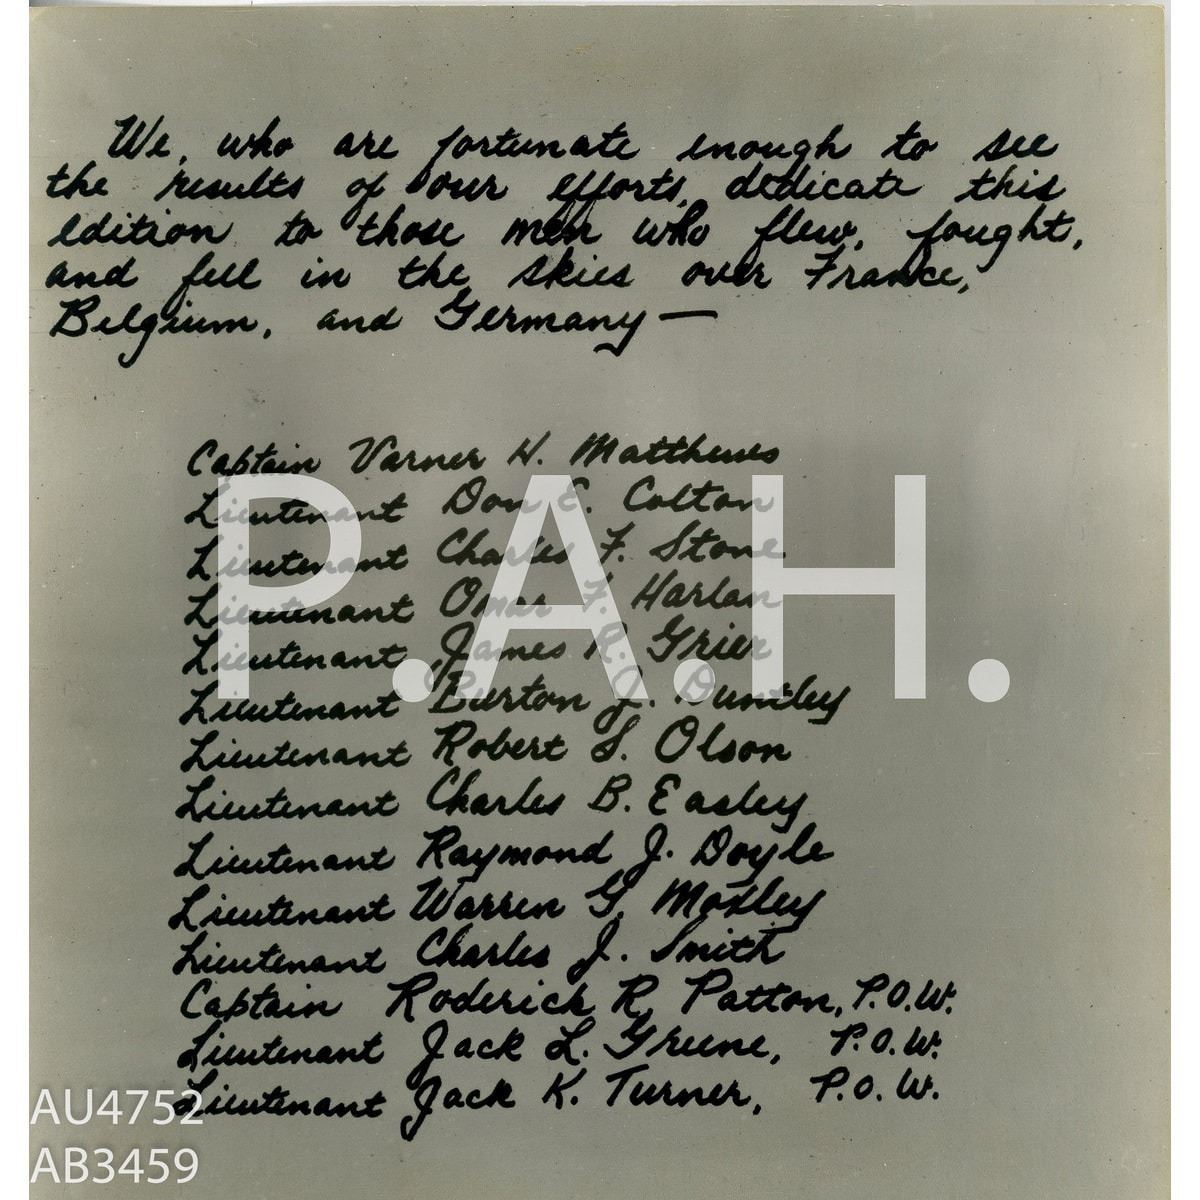 We, who are fortunate enough to see
the results of our efforts, dedicate this
edition to those men who flew, fought,
and fell in the skies over France,
Belgium, and Germany —
Captain Varner H. Matthews
Lieutenant Don E. Colton
Lieutenant Charles F. Stone
Lieutenant Omar F. Harlan
Lieutenant James R. Grier
Lieutenant Burton J. Duntley
Lieutenant Robert S. Olson
Lieutenant Charles B. Easley
Lieutenant Raymond J. Doyle
Lieutenant Warren G. Moxley
Lieutenant Charles J. Smith
Captain Roderick R. Patton, P.O.W.
Lieutenant Jack L. Greene, P.O.W.
Lieutenant Jack K. Turner, P.O.W.
P.A.H.
AU4752
AB3459